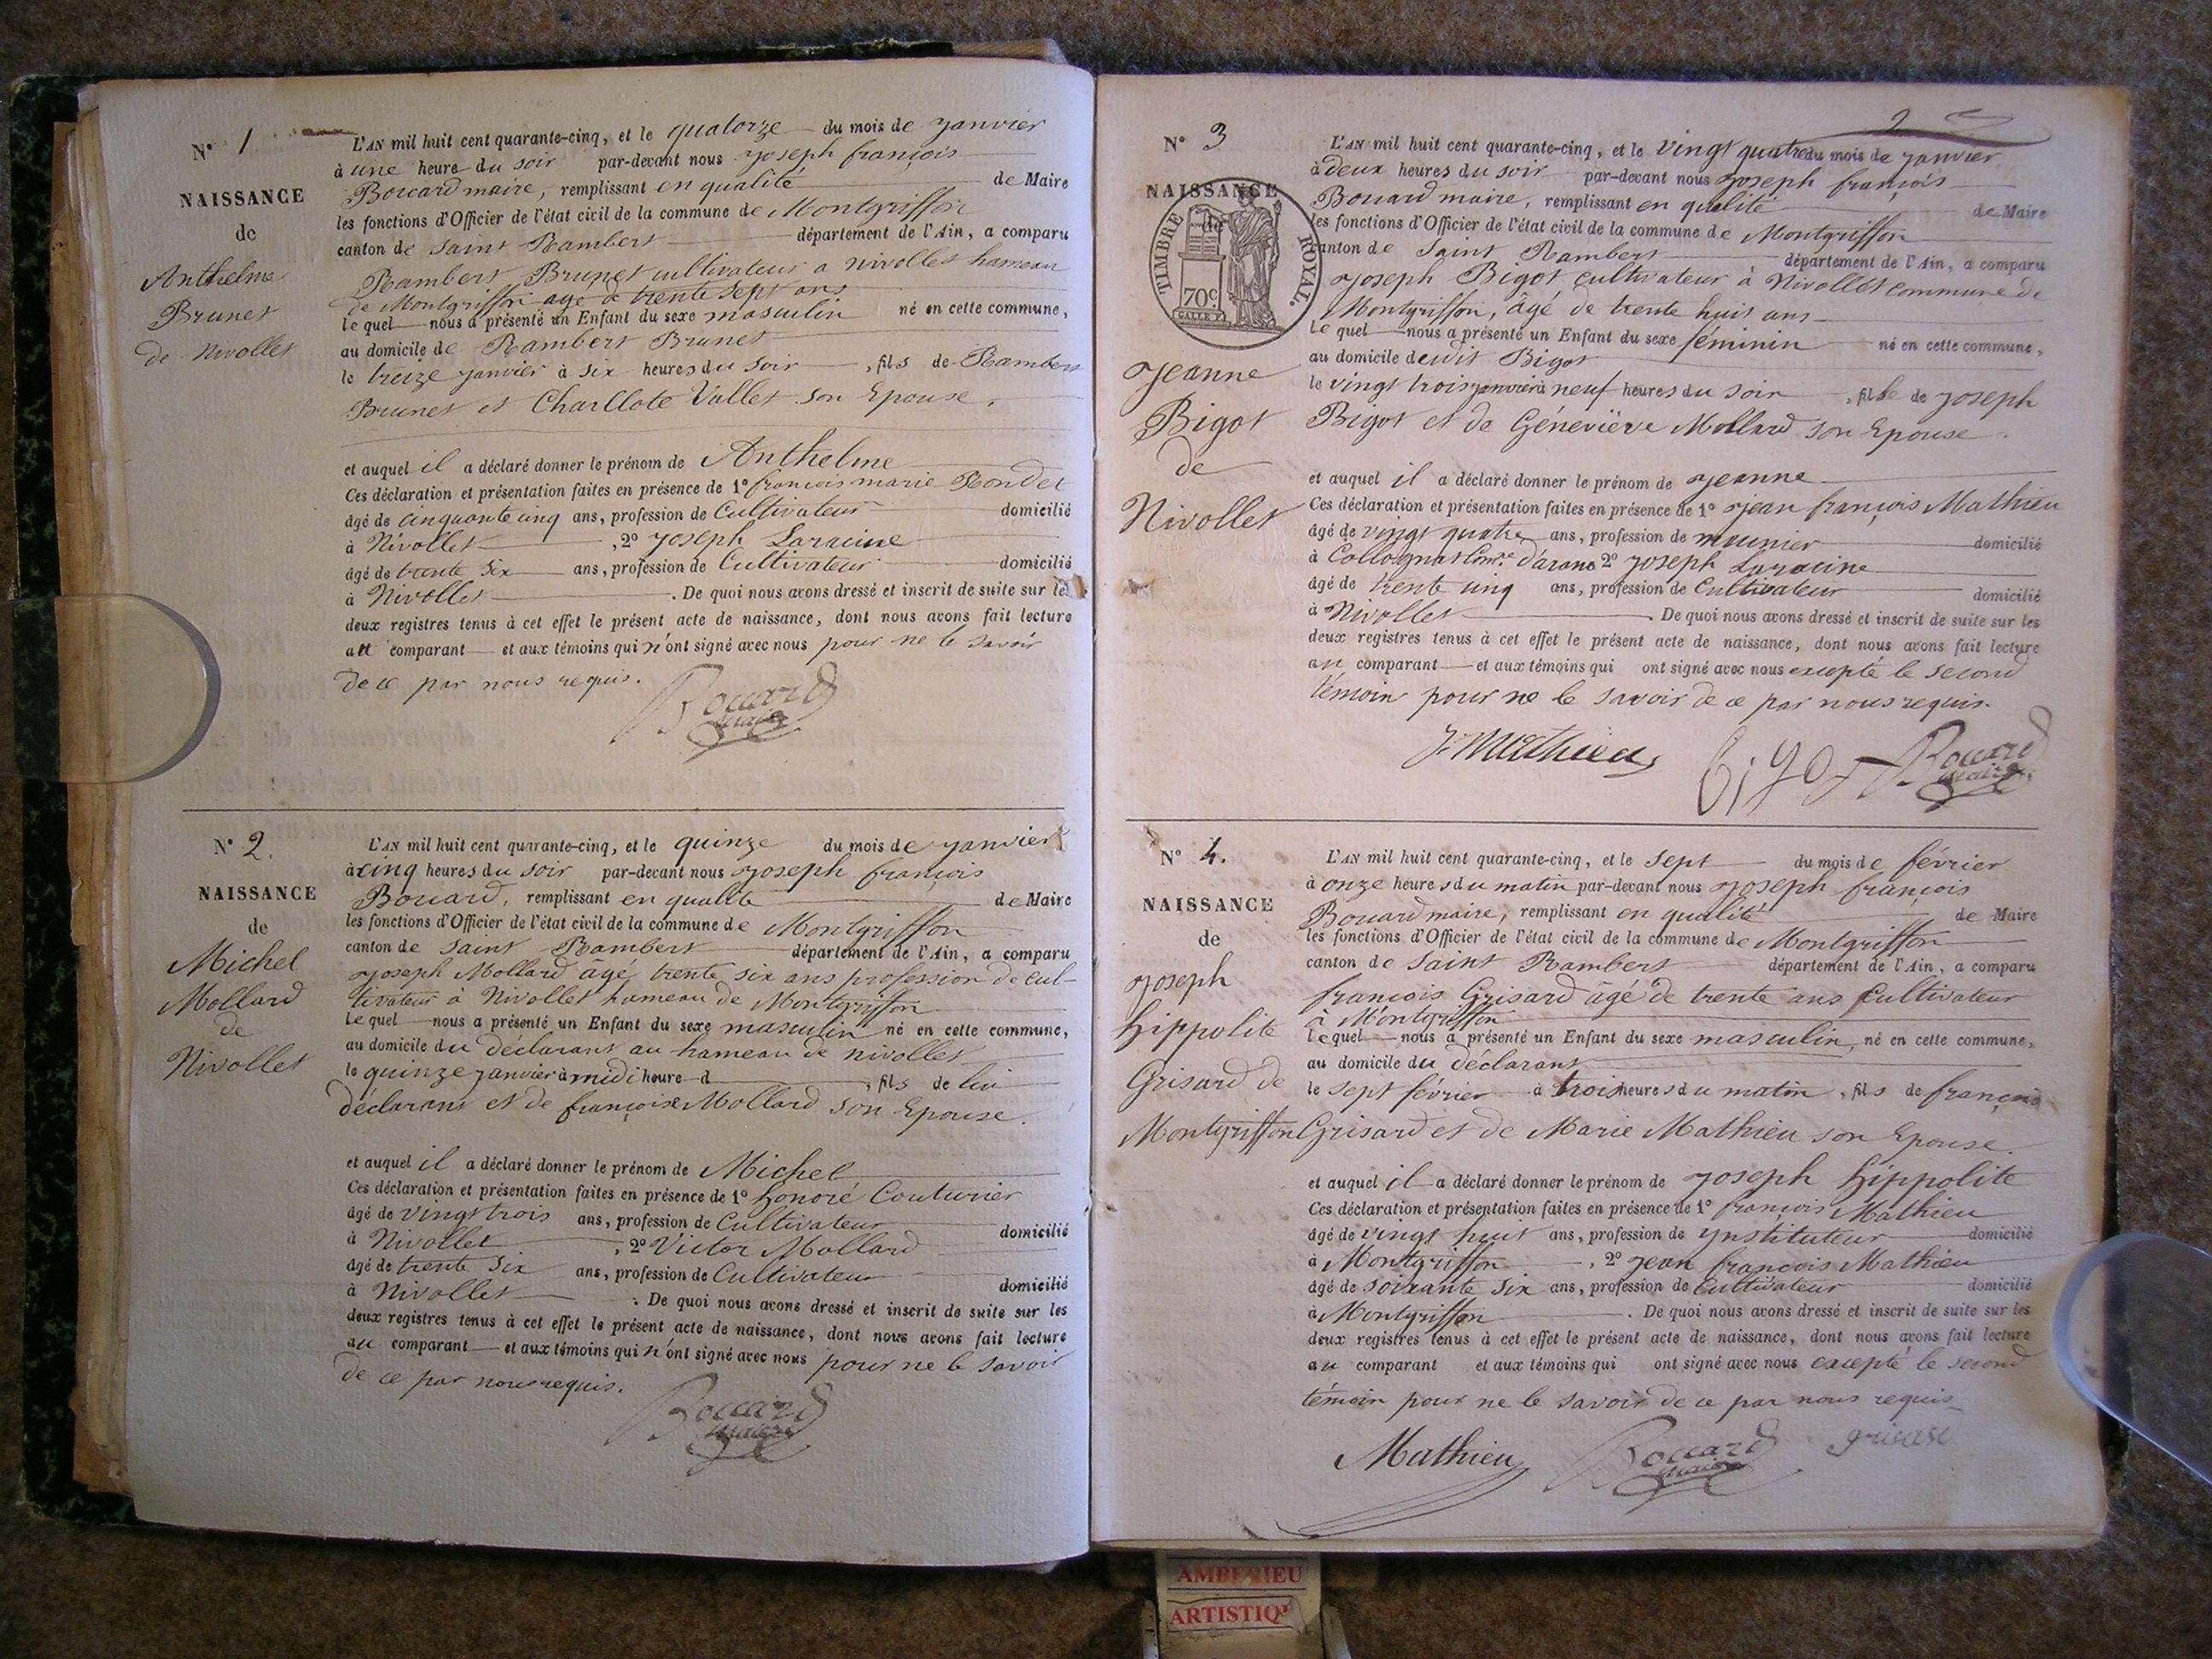 N° 1
NAISSANCE
de
Anthelme
Brunet
de Nivollet
L'AN mil huit cent quarante-cinq, et le quatorze du mois de janvier
à une heure du soir par-devant nous joseph françois
Bouard maire, remplissant en qualité de Maire
les fonctions d'Officier de l'état civil de la commune de Montgriffon
canton de Saint Rambert département de l'Ain, a comparu
Rambert Brunet cultivateur a nivollet hameau
de Montgriffon agé de trente sept ans
lequel nous a présenté un Enfant du sexe masculin né en cette commune,
au domicile de Rambert Brunet
le treize janvier à six heures du soir, fils de Rambert
Brunet et Charllote Vallet son Epouse.
et auquel il a déclaré donner le prénom de Anthelme
Ces déclaration et présentation faites en présence de 1° francois marie Rondet
âgé de cinquante cinq ans, profession de Cultivateur domicilié
à Nivollet, 2° joseph Laracine
âgé de trente six ans, profession de Cultivateur domicilié
à Nivollet. De quoi nous avons dressé et inscrit de suite sur les
deux registres tenus à cet effet le présent acte de naissance, dont nous avons fait lecture
au comparant et aux témoins qui n'ont signé avec nous pour ne le savoir
de ce par nous requis.
Bouard
maire
N° 2.
NAISSANCE
de
Michel
Mollard
de
Nivollet
L'AN mil huit cent quarante-cinq, et le quinze du mois de janvier
à cinq heures du soir par-devant nous joseph françois
Bouard, remplissant en qualité de Maire
les fonctions d'Officier de l'état civil de la commune de Montgriffon
canton de Saint Rambert département de l'Ain, a comparu
joseph Mollard âgé trente six ans profession de cul-
tivateur à Nivollet hameau de Montgriffon
Lequel nous a présenté un Enfant du sexe masculin né en cette commune,
au domicile du déclarant au hameau de nivollet
le quinze janvier à midi heure d, fils de lui
déclarant et de françoise Mollard son Epouse.
et auquel il a déclaré donner le prénom de Michel
Ces déclaration et présentation faites en présence de 1° honoré Couturier
âgé de vingt trois ans, profession de Cultivateur domicilié
à Nivollet, 2° Victor Mollard
âgé de trente six ans, profession de Cultivateur domicilié
à Nivollet. De quoi nous avons dressé et inscrit de suite sur les
deux registres tenus à cet effet le présent acte de naissance, dont nous avons fait lecture
au comparant et aux témoins qui n'ont signé avec nous pour ne le savoir
de ce par nous requis.
Bouard
maire
2
N° 3
NAISSANCE
de
TIMBRE ROYAL.
70c.
Jeanne
Bigot
de
Nivollet
L'AN mil huit cent quarante-cinq, et le vingt quatre du mois de janvier
à deux heures du soir par-devant nous joseph françois
Bouard maire, remplissant en qualité de Maire
les fonctions d'Officier de l'état civil de la commune de Montgriffon
canton de Saint Rambert département de l'Ain, a comparu
joseph Bigot cultivateur à Nivollet commune de
Montgriffon, âgé de trente huit ans
Lequel nous a présenté un Enfant du sexe féminin né en cette commune,
au domicile dudit Bigot
le vingt trois janvier à neuf heures du soir, fille de joseph
Bigot et de Géneviève Mollard son Epouse.
et auquel il a déclaré donner le prénom de jeanne
Ces déclaration et présentation faites en présence de 1° jean françois Mathieu
âgé de vingt quatre ans, profession de meunier domicilié
à Collognat Com.ne d'arane 2° joseph Laracine
âgé de trente cinq ans, profession de Cultivateur domicilié
à Nivollet De quoi nous avons dressé et inscrit de suite sur les
deux registres tenus à cet effet le présent acte de naissance, dont nous avons fait lecture
au comparant et aux témoins qui ont signé avec nous excepté le second
témoin pour ne le savoir de ce par nous requis.
J. Mathieu Bigot Bouard
maire
N° 4.
NAISSANCE
de
joseph
hippolite
Grisard de
Montgriffon
L'AN mil huit cent quarante-cinq, et le sept du mois de février
à onze heures du matin par-devant nous joseph françois
Bouard maire, remplissant en qualité de Maire
les fonctions d'Officier de l'état civil de la commune de Montgriffon
canton de Saint Rambert département de l'Ain, a comparu
françois Grisard âgé de trente ans Cultivateur
à Montgriffon
lequel nous a présenté un Enfant du sexe masculin, né en cette commune,
au domicile du déclarant
le sept février à trois heures du matin, fils de françois
Grisard et de Marie Mathieu son Epouse.
et auquel il a déclaré donner le prénom de joseph hippolite
Ces déclaration et présentation faites en présence de 1° françois Mathieu
âgé de vingt huit ans, profession de ynstituteur domicilié
à Montgriffon, 2° jean francois Mathieu
âgé de soixante six ans, profession de Cultivateur domicilié
à Montgriffon. De quoi nous avons dressé et inscrit de suite sur les
deux registres tenus à cet effet le présent acte de naissance, dont nous avons fait lecture
au comparant et aux témoins qui ont signé avec nous excepté le second
témoin pour ne le savoir de ce par nous requis
Mathieu Bouard
maire
AMBERIEU
ARTISTIQ